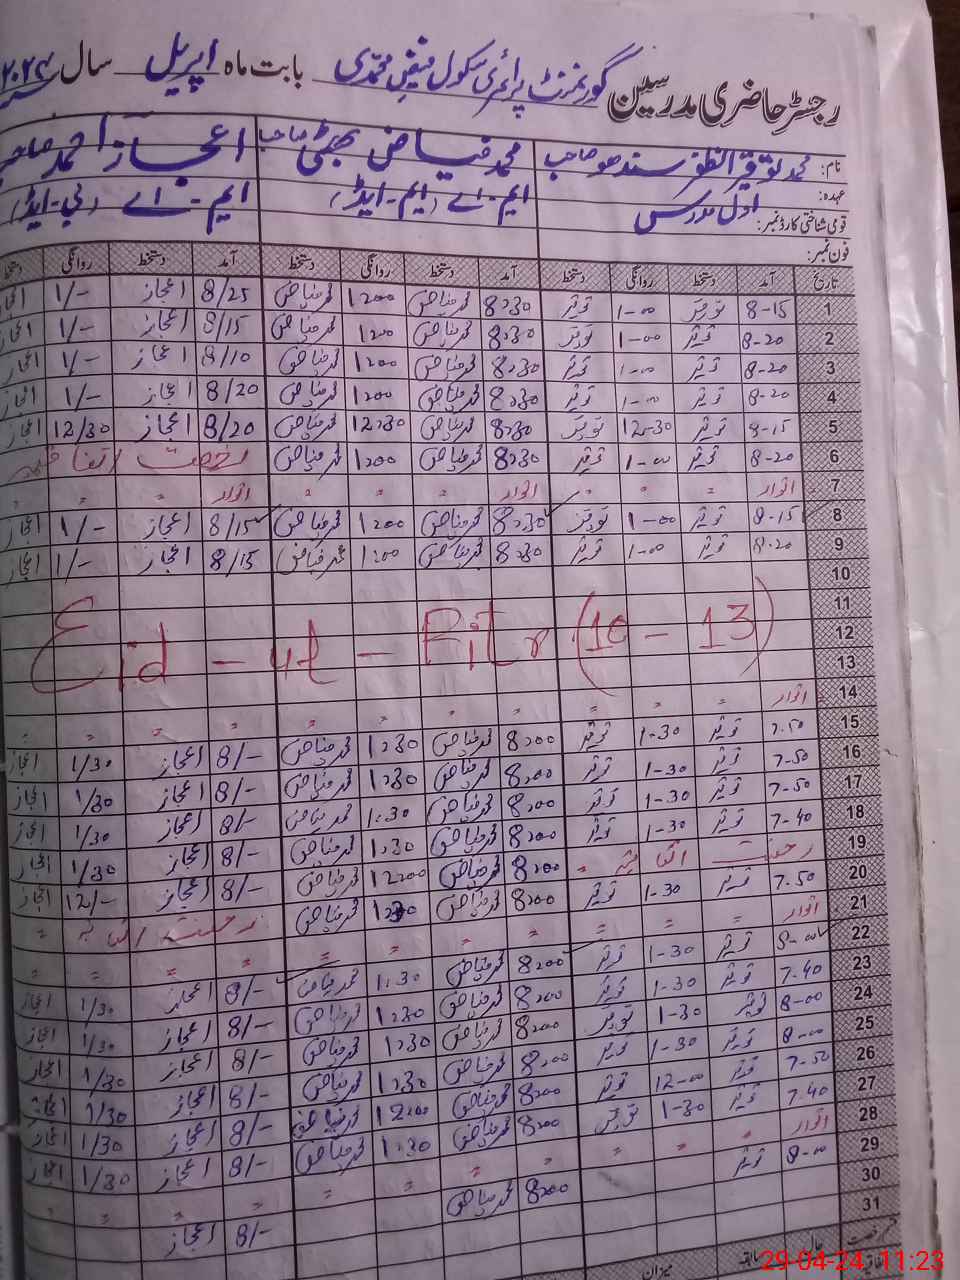 رجسٹر حاضری مدرسین گورنمنٹ پرائمری سکول فیض محمدی بابت ماہ اپریل سال ۲۰۲۴
نام: محمد توقیر الظفر سندھو صاحب محمد فیاض بھٹی صاحب اعجاز احمد صاحب
عہدہ: اول مدرس ایم-اے (ایم-ایڈ) ایم-اے (بی-ایڈ)
قومی شناختی کارڈ نمبر:
فون نمبر:
تاریخ آمد دستخط روانگی دستخط آمد دستخط روانگی دستخط آمد دستخط روانگی دستخط
1 8-15 توقیر 1-00 توقیر 8:30 محمد فیاض 1:00 محمد فیاض 8/25 اعجاز 1/- اعجاز
2 8-20 توقیر 1-00 توقیر 8:30 محمد فیاض 1:00 محمد فیاض 8/15 اعجاز 1/- اعجاز
3 8-20 توقیر 1-00 توقیر 8:30 محمد فیاض 1:00 محمد فیاض 8/10 اعجاز 1/- اعجاز
4 8-20 توقیر 1-00 توقیر 8:30 محمد فیاض 1:00 محمد فیاض 8/20 اعجاز 1/- اعجاز
5 8-15 توقیر 12-30 توقیر 8:30 محمد فیاض 12:30 محمد فیاض 8/20 اعجاز 12/30 اعجاز
6 8-20 توقیر 1-00 توقیر 8:30 محمد فیاض 1:00 محمد فیاض رخصت اتفاقیہ
7 اتوار " " " اتوار " " " اتوار " " "
8 8-15 توقیر 1-00 توقیر 8:30 محمد فیاض 1:00 محمد فیاض 8/15 اعجاز 1/- اعجاز
9 8-20 توقیر 1-00 توقیر 8:30 محمد فیاض 1:00 محمد فیاض 8/15 اعجاز 1/- اعجاز
10
11
Eid - ut - Fitr (10 - 13)
12
13
14 اتوار " " " " " " " " " "
15 7-50 توقیر 1-30 توقیر 8:00 محمد فیاض 1:30 محمد فیاض 8/- اعجاز 1/30 اعجاز
16 7-50 توقیر 1-30 توقیر 8:00 محمد فیاض 1:30 محمد فیاض 8/- اعجاز 1/30 اعجاز
17 7-50 توقیر 1-30 توقیر 8:00 محمد فیاض 1:30 محمد فیاض 8/- اعجاز 1/30 اعجاز
18 7-40 توقیر 1-30 توقیر 8:00 محمد فیاض 1:30 محمد فیاض 8/- اعجاز 1/30 اعجاز
19 رخصت اتفاقیہ 8:00 محمد فیاض 12:00 محمد فیاض 8/- اعجاز 12/- اعجاز
20 7-50 توقیر 1-30 توقیر 8:00 محمد فیاض 1:30 محمد فیاض رخصت اتفاقیہ
21 اتوار " " " " " " " " " "
22 8-00 توقیر 1-30 توقیر 8:00 محمد فیاض 1:30 محمد فیاض 8/- اعجاز 1/30 اعجاز
23 7-40 توقیر 1-30 توقیر 8:00 محمد فیاض 1:30 محمد فیاض 8/- اعجاز 1/30 اعجاز
24 8-00 توقیر 1-30 توقیر 8:00 محمد فیاض 1:30 محمد فیاض 8/- اعجاز 1/30 اعجاز
25 8-00 توقیر 1-30 توقیر 8:00 محمد فیاض 1:30 محمد فیاض 8/- اعجاز 1/30 اعجاز
26 7-50 توقیر 12-00 توقیر 8:00 محمد فیاض 12:00 محمد فیاض 8/- اعجاز 1/30 اعجاز
27 7-40 توقیر 1-30 توقیر 8:00 محمد فیاض 1:30 محمد فیاض 8/- اعجاز 1/30 اعجاز
28 اتوار " " " " " " " " " "
29 8-00 توقیر 8:00 محمد فیاض 8/- اعجاز
30
31
حال سابقہ میزان
29-04-24 11:23